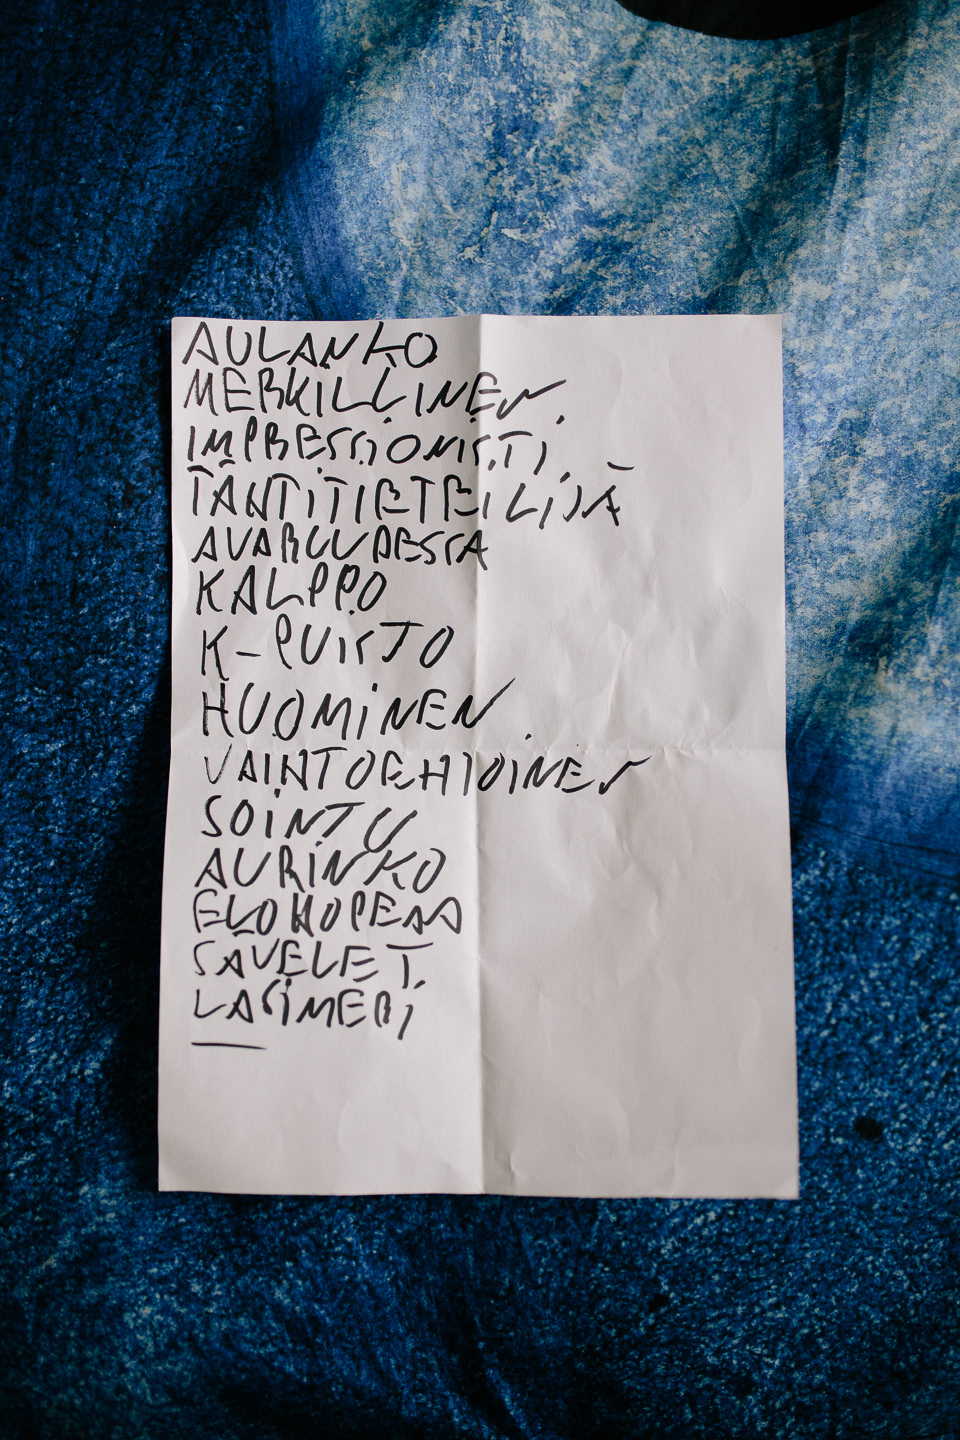 AULANKO
MERKILLINEN
IMPRESSIONISTI
TÄHTITIETEILIJÄ
AVARUUDESSA
KALPPO
K-PUISTO
HUOMINEN
VAIHTOEHTOINEN
SOINTU
AURINKO
ELOHOPEAA
SÄVELET
LASIMERI